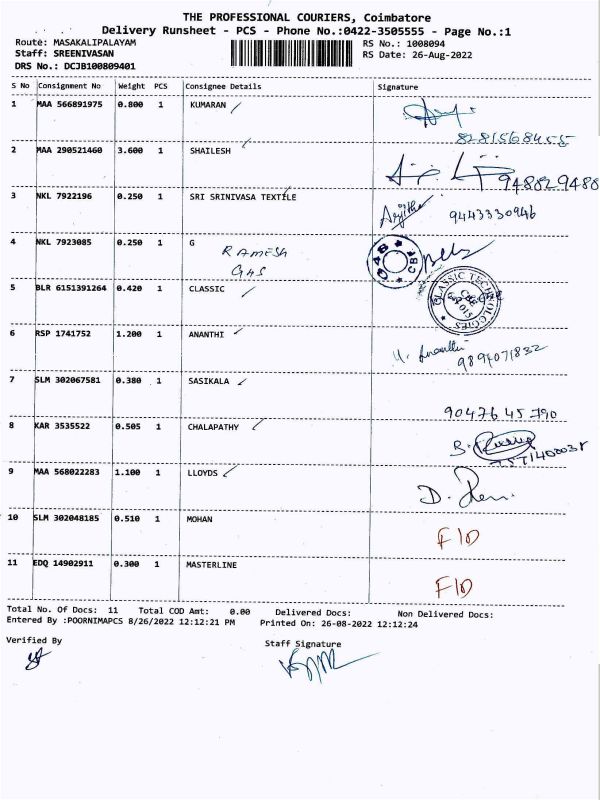 THE PROFESSIONAL COURIERS, Coimbatore
Delivery Runsheet - PCS - Phone No.:0422-3505555 - Page No.:1
Route: MASAKALIPALAYAM RS No.: 1008094
Staff: SREENIVASAN RS Date: 26-Aug-2022
DRS No.: DCJB100809401
S No Consignment No Weight PCS Consignee Details Signature
1 MAA 566891975 0.800 1 KUMARAN
8281568455
2 MAA 290521460 3.600 1 SHAILESH
948829488
3 NKL 7922196 0.250 1 SRI SRINIVASA TEXTILE
9443330946
4 NKL 7923085 0.250 1 G
RAMESH
5 BLR 6151391264 0.420 1 CLASSIC
CLASSIC TECHNOLOGIES
6 RSP 1741752 1.200 1 ANANTHI
9894071832
7 SLM 302067581 0.380 1 SASIKALA
9047645790
8 KAR 3535522 0.505 1 CHALAPATHY
9 MAA 568022283 1.100 1 LLOYDS
10 SLM 302048185 0.510 1 MOHAN
F/D
11 EDQ 14902911 0.300 1 MASTERLINE
F/D
Total No. Of Docs: 11 Total COD Amt: 0.00 Delivered Docs: Non Delivered Docs:
Entered By :POORNIMAPCS 8/26/2022 12:12:21 PM Printed On: 26-08-2022 12:12:24
Verified By Staff Signature